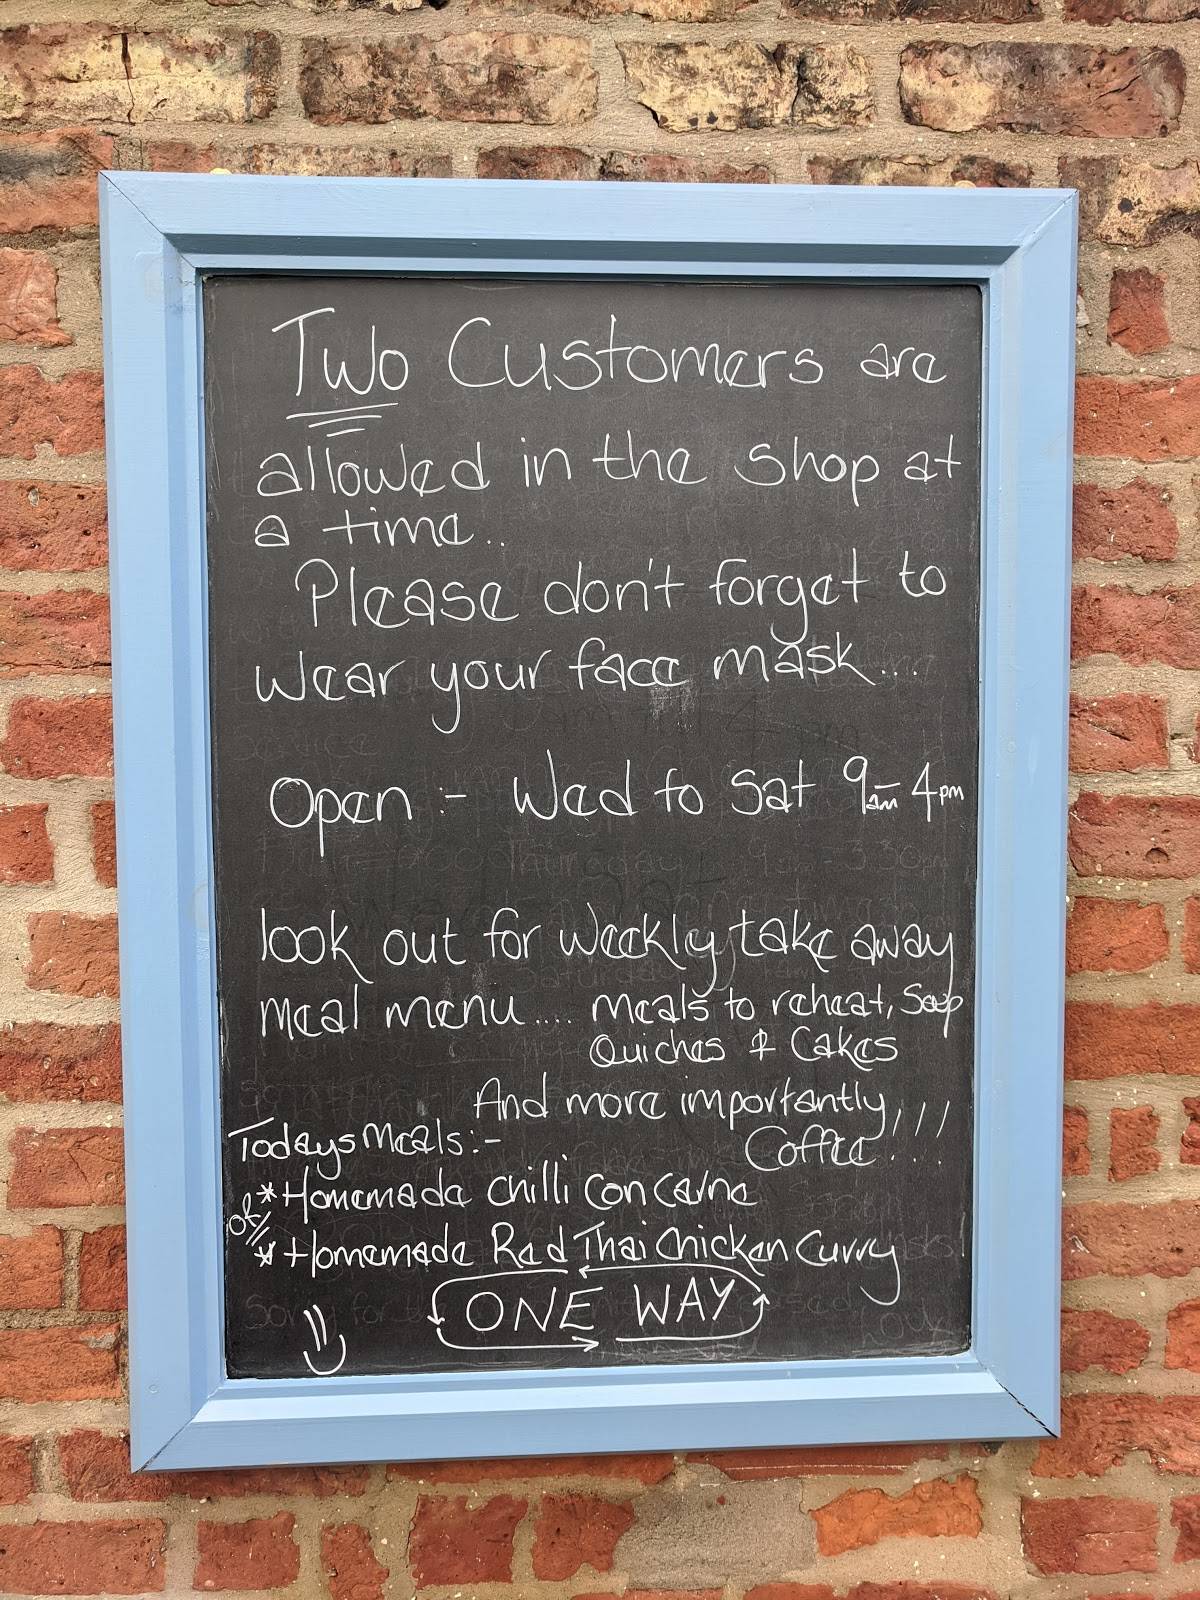 Two Customers are
allowed in the shop at
a time..
Please don't forget to
wear your face mask...
Open :- Wed to Sat 9am-4pm
look out for weekly take away
meal menu.... meals to reheat, Soup
Quiches & Cakes
And more importantly,!!!
Coffee....
Todays Meals:-
* Homemade Chilli Con Carne
or//
* Homemade Red Thai Chicken Curry
ONE WAY